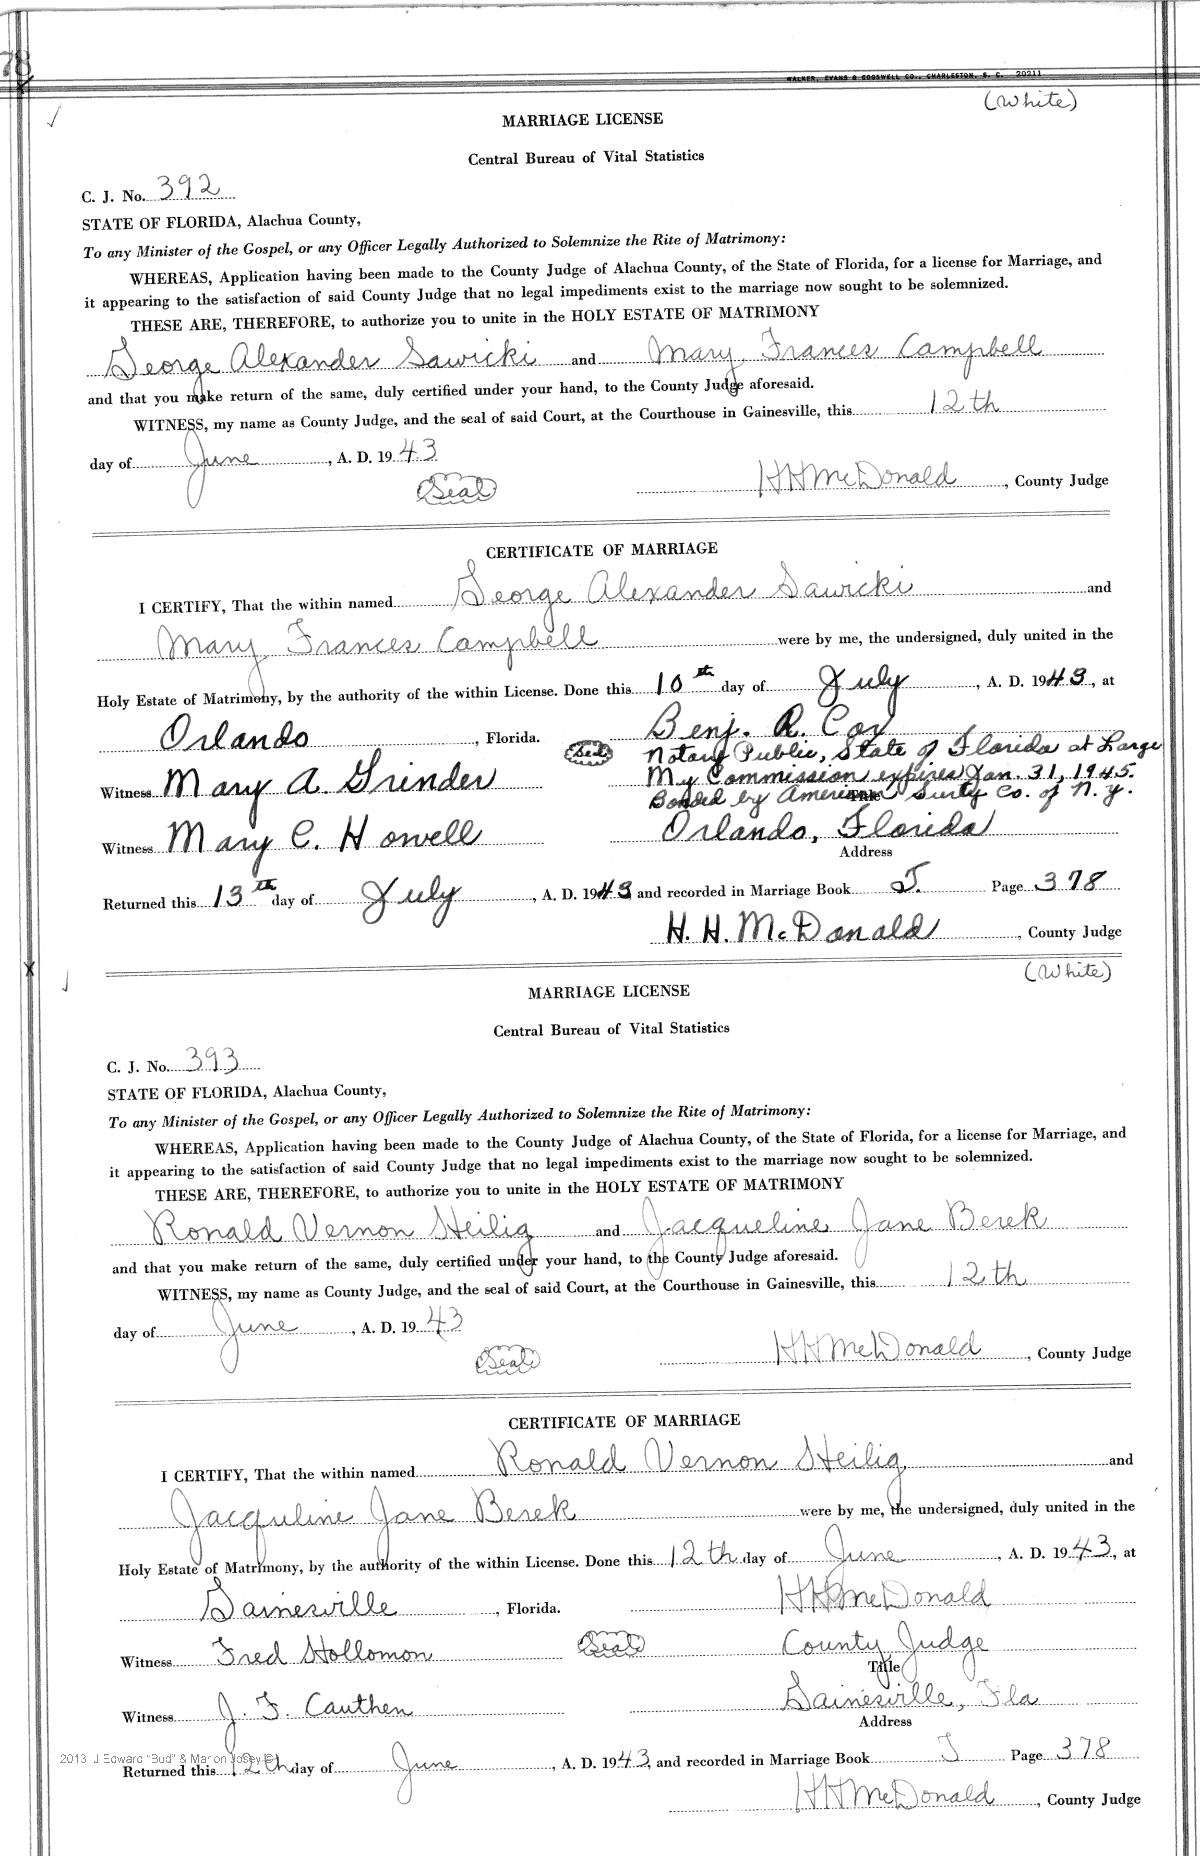 78
WALKER, EVANS & COGSWELL CO., CHARLESTON, S. C. 20211
(White)
MARRIAGE LICENSE
Central Bureau of Vital Statistics
C. J. No. 392
STATE OF FLORIDA, Alachua County,
To any Minister of the Gospel, or any Officer Legally Authorized to Solemnize the Rite of Matrimony:
WHEREAS, Application having been made to the County Judge of Alachua County, of the State of Florida, for a license for Marriage, and
it appearing to the satisfaction of said County Judge that no legal impediments exist to the marriage now sought to be solemnized.
THESE ARE, THEREFORE, to authorize you to unite in the HOLY ESTATE OF MATRIMONY
George Alexander Sawicki and Mary Frances Campbell
and that you make return of the same, duly certified under your hand, to the County Judge aforesaid.
WITNESS, my name as County Judge, and the seal of said Court, at the Courthouse in Gainesville, this 12th
day of June, A. D. 1943
(Seal) HHMcDonald, County Judge
CERTIFICATE OF MARRIAGE
I CERTIFY, That the within named George Alexander Sawicki and
Mary Frances Campbell were by me, the undersigned, duly united in the
Holy Estate of Matrimony, by the authority of the within License. Done this 10th day of July, A. D. 1943, at
Orlando, Florida. Benj. R. Cox
(Seal) Notary Public, State of Florida at Large
Witness Mary A. Grinder My Commission expires Jan. 31, 1945.
Bonded by American Surty Co. of N. Y.
Title
Witness Mary C. Howell Orlando, Florida
Address
Returned this 13th day of July, A. D. 1943 and recorded in Marriage Book J. Page 378
H. H. McDonald, County Judge
(White)
MARRIAGE LICENSE
Central Bureau of Vital Statistics
C. J. No. 393
STATE OF FLORIDA, Alachua County,
To any Minister of the Gospel, or any Officer Legally Authorized to Solemnize the Rite of Matrimony:
WHEREAS, Application having been made to the County Judge of Alachua County, of the State of Florida, for a license for Marriage, and
it appearing to the satisfaction of said County Judge that no legal impediments exist to the marriage now sought to be solemnized.
THESE ARE, THEREFORE, to authorize you to unite in the HOLY ESTATE OF MATRIMONY
Ronald Vernon Heilig and Jacqueline Jane Berek
and that you make return of the same, duly certified under your hand, to the County Judge aforesaid.
WITNESS, my name as County Judge, and the seal of said Court, at the Courthouse in Gainesville, this 12th
day of June, A. D. 1943
(Seal) HHMcDonald, County Judge
CERTIFICATE OF MARRIAGE
I CERTIFY, That the within named Ronald Vernon Heilig and
Jacquline Jane Berek were by me, the undersigned, duly united in the
Holy Estate of Matrimony, by the authority of the within License. Done this 12th day of June, A. D. 1943, at
Gainesville, Florida. HHMcDonald
Witness Fred Hollomon (Seal) County Judge
Title
Witness J. F. Cauthen Gainesville, Fla
Address
2013 J Edward "Bud" & Marion Josey
Returned this 12th day of June, A. D. 1943, and recorded in Marriage Book J Page 378
HHMcDonald, County Judge